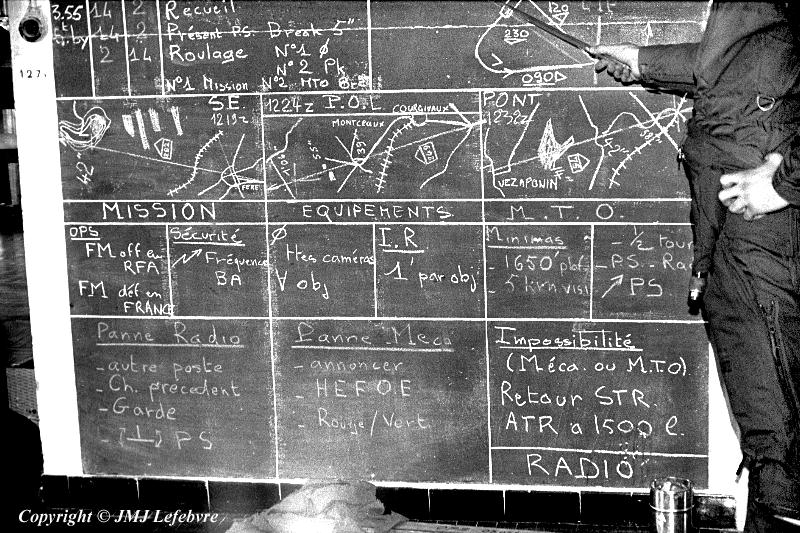 3.55 14 2 Recueil
14 2 Présent PS. Break 5"
2 14 Roulage N°1 Ø
N°2 Pk
N°1 Mission N°2 MTO
120
230
090
127
S.E. 1219z
42"
FÈRE
1224z P.O.L
COURGIVAUX
MONTCEAUX
39
PONT 1232z
42"
VEZAPONIN
MISSION
EQUIPEMENTS
M.T.O.
OPS
FM off en
RFA
FM déf en
FRANCE
Sécurité
Fréquence
BA
Ø
ttes caméras
∀ obj
I.R
1 par obj
Minimas
- 1650' plaf
- 5 km visi
- 1/2 tour
- PS - Rad
↗ PS
Panne Radio
- autre poste
- Ch. précédent
- Garde
PS
Panne Meca
- annoncer
- H.E.F.O.E
- Rouge/Vert.
Impossibilité
(Méca. ou M.TO)
Retour STR.
ATR à 1500 l.
RADIO
Copyright © JMJ Lefebvre